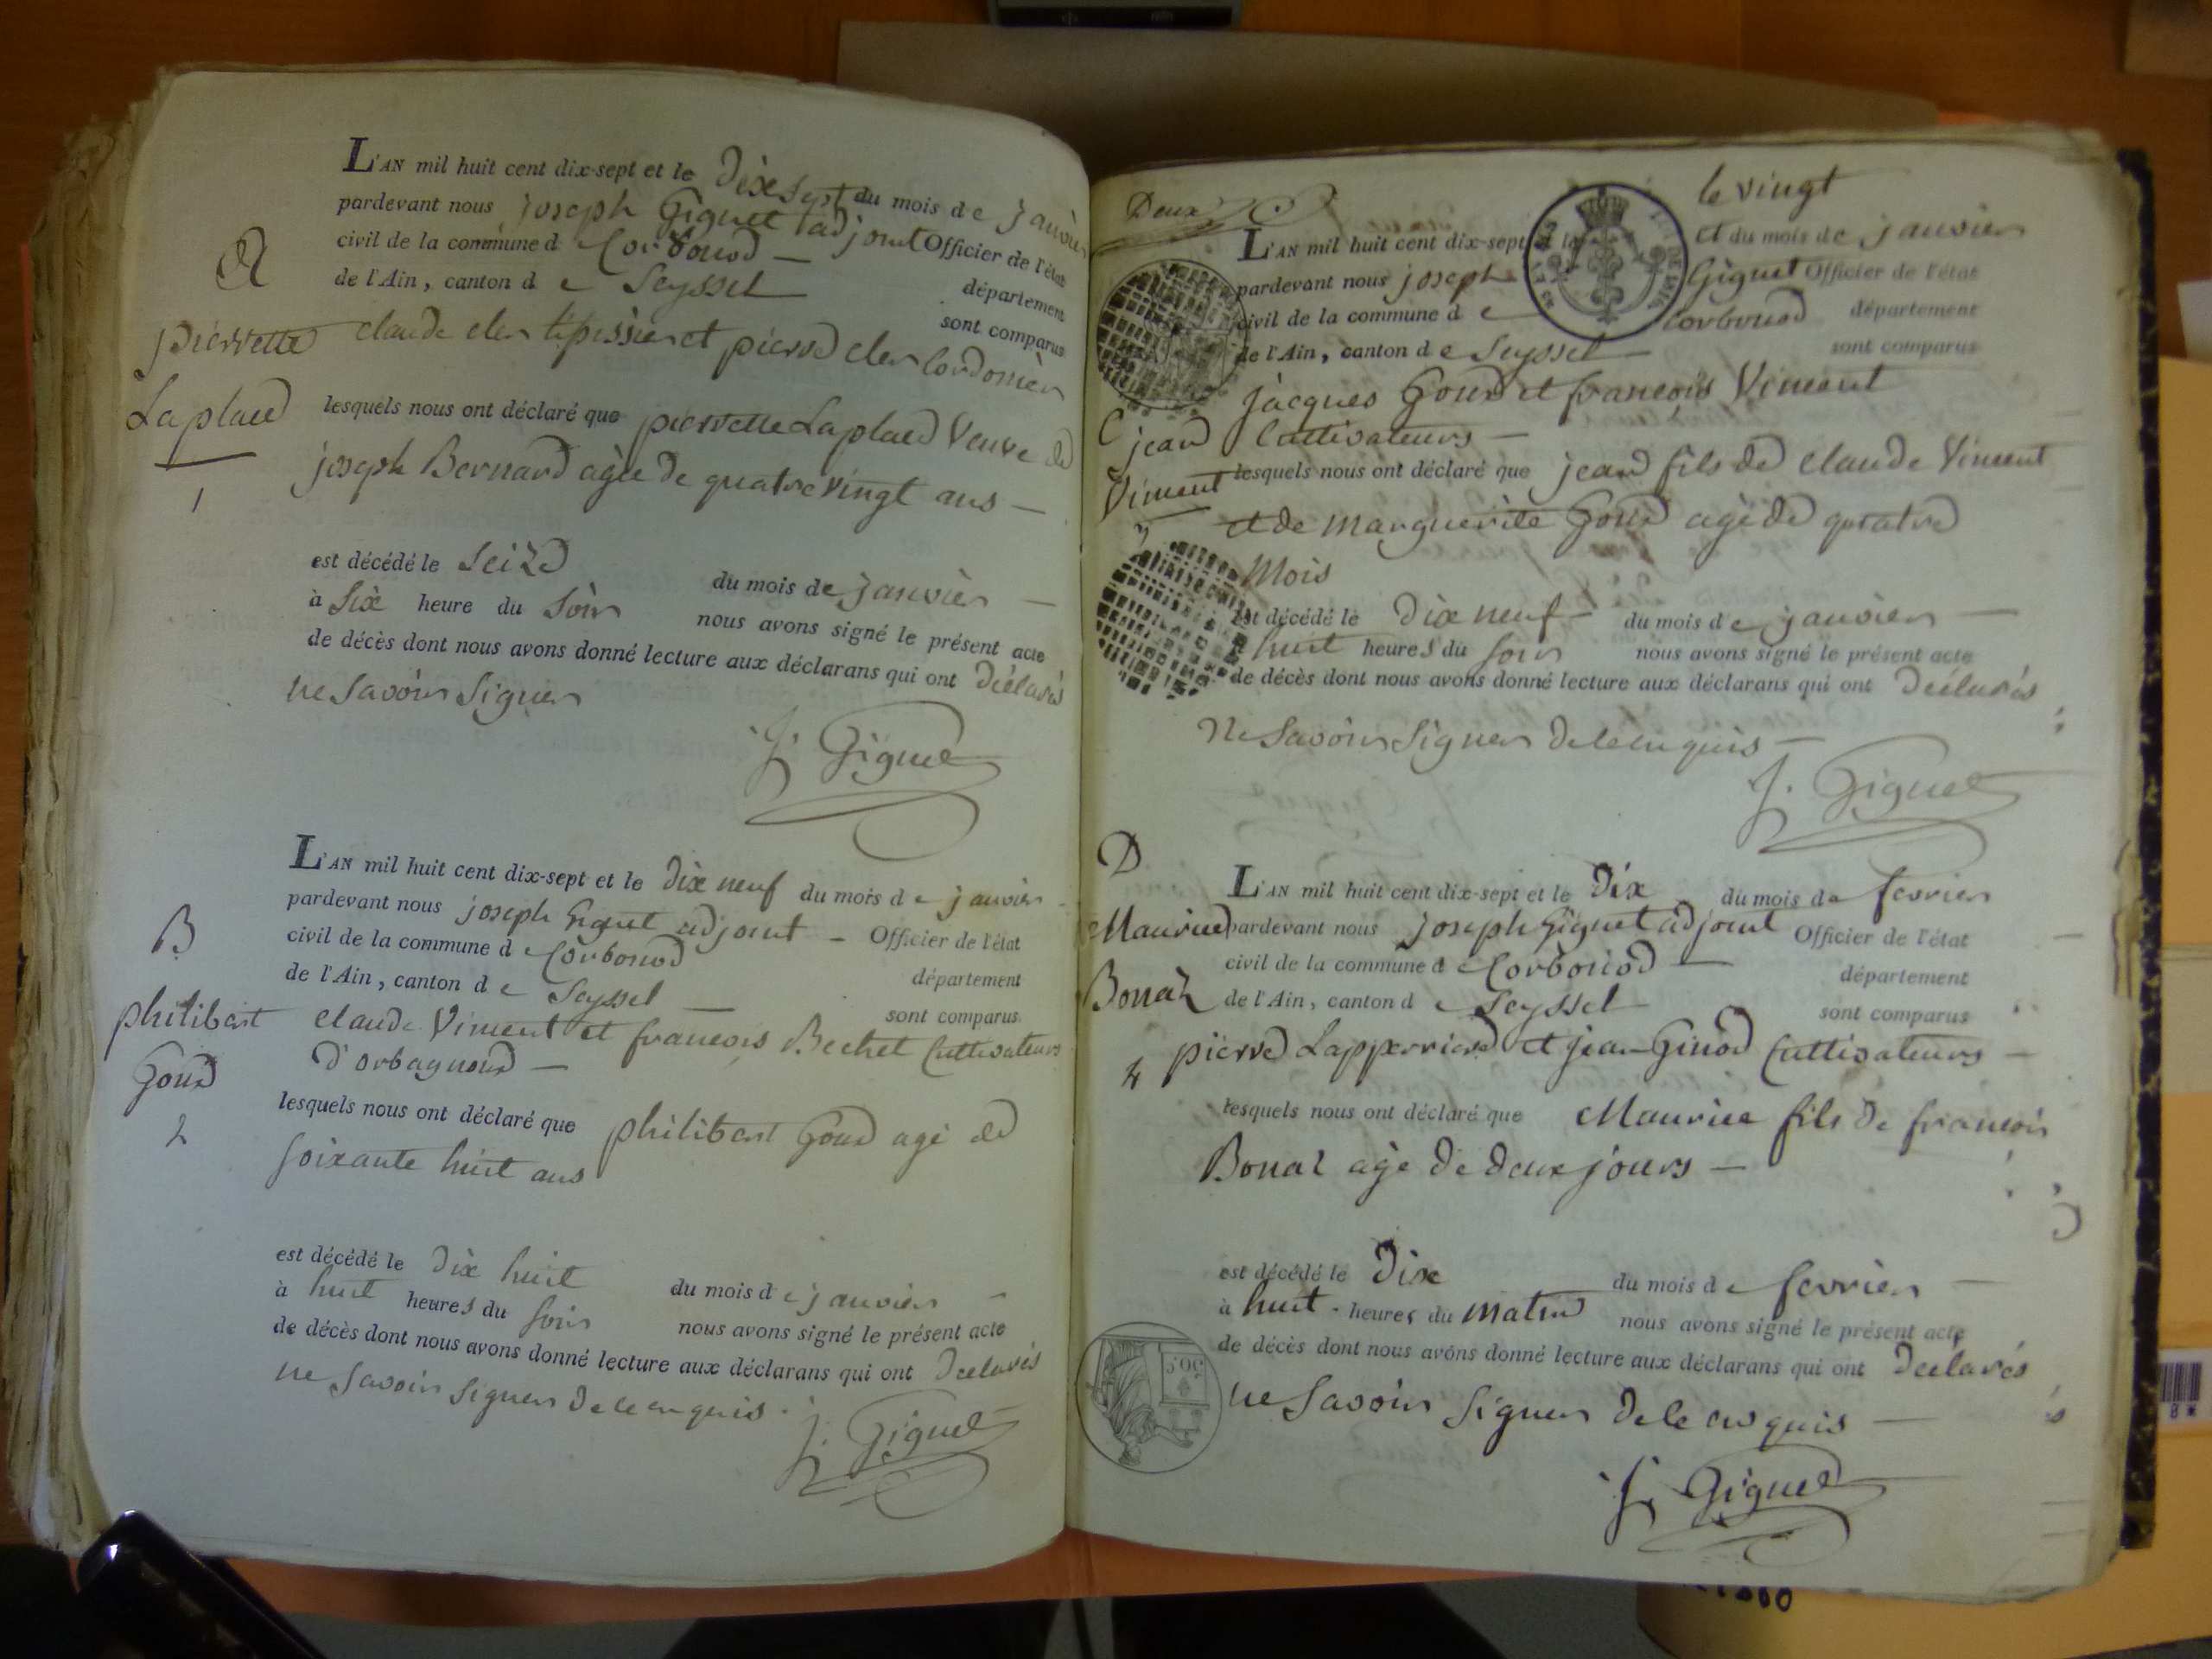 L'AN mil huit cent dix-sept et le Dix Sept du mois de janvier
pardevant nous joseph Giguet adjoint Officier de l'état
civil de la commune de Corbonod — département
de l'Ain, canton de Seyssel — sont comparus
A
pierrette
Laplace
1
claude cler et pierre cler Cordonier
lesquels nous ont déclaré que pierrette Laplace Veuve de
joseph Bernard agée de quatre vingt ans —
est décédé le Seize du mois de janvier —
à Six heure du Soir nous avons signé le présent acte
de décès dont nous avons donné lecture aux déclarans qui ont déclarés
ne Savoir Signer
J. Giguet
L'AN mil huit cent dix-sept et le Dix neuf du mois de janvier
pardevant nous joseph Giguet adjoint — Officier de l'état
civil de la commune de Corbonod département
de l'Ain, canton de Seyssel — sont comparus
B
philibert
Goud
2
claude Vincent et francois Bechet Cultivateurs
d'orbagnoud —
lesquels nous ont déclaré que philibert Goud agé de
soixante huit ans
est décédé le Dix huit du mois de janvier —
à huit heures du soir nous avons signé le présent acte
de décès dont nous avons donné lecture aux déclarans qui ont Déclarés
ne Savoir Signer de ce enquis.
J. Giguet
Deux
le vingt
L'AN mil huit cent dix-sept et le et du mois de janvier
pardevant nous joseph Giguet Officier de l'état
civil de la commune de Corbonod département
de l'Ain, canton de Seyssel — sont comparus
C jean
Vincent
3
jacques Goud et françois Vincent
Cultivateurs —
lesquels nous ont déclaré que jean fils de claude Vincent
et de marguerite Goud agé de quatre
Mois
est décédé le Dix neuf — du mois de janvier —
à huit heures du soir nous avons signé le présent acte
de décès dont nous avons donné lecture aux déclarans qui ont Déclarés
Ne Savoir Signer de ce enquis —
J. Giguet
D
Maurice
Bonaz
4
L'AN mil huit cent dix-sept et le Dix du mois de fevrier
pardevant nous joseph Giguet adjoint Officier de l'état
civil de la commune de Corbonod — département
de l'Ain, canton de Seyssel sont comparus
pierre Lapperriere et jean Ginod Cultivateurs —
lesquels nous ont déclaré que Maurice fils de francois
Bonaz agé de deux jours —
est décédé le Dix du mois de fevrier —
à huit - heures du matin nous avons signé le présent acte
de décès dont nous avons donné lecture aux déclarans qui ont Déclarés
ne Savoir Signer de ce enquis —
50 C.
J. Giguet